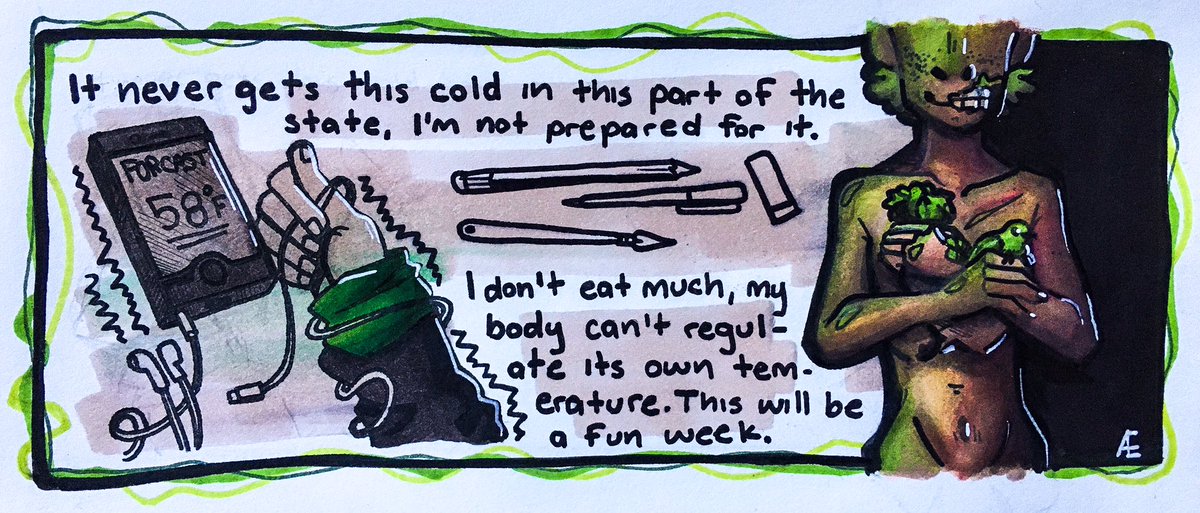 It never gets this cold in this part of the
state, I'm not prepared for it.
FORCAST
58°F
I don't eat much, my
body can't regul-
ate its own tem-
erature. This will be
a fun week.
Æ